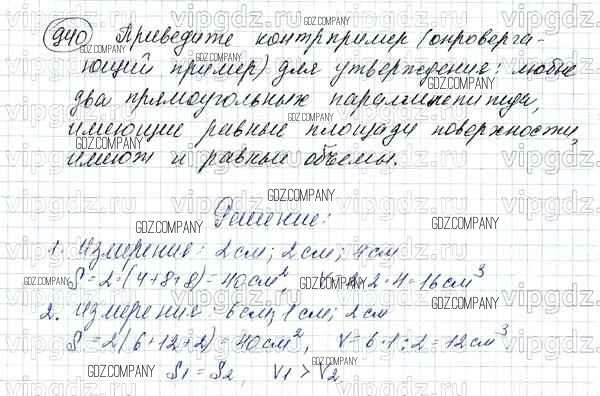 940 Приведите контрпример (опроверга-
ющий пример) для утверждения: любые
два прямоугольных параллелепипеда,
имеющие равные площади поверхности,
имеют и равные объемы.
Решение:
1. Измерение: 2 см; 2 см; 4 см
S = 2·(4+8+8) = 40 см², V = 2·2·4 = 16 см³
2. Измерение 6 см; 1 см; 2 см
S = 2(6+12+2) = 40 см², V = 6·1·2 = 12 см³.
S1 = S2, V1 > V2.
GDZ.COMPANY
vipgdz.com